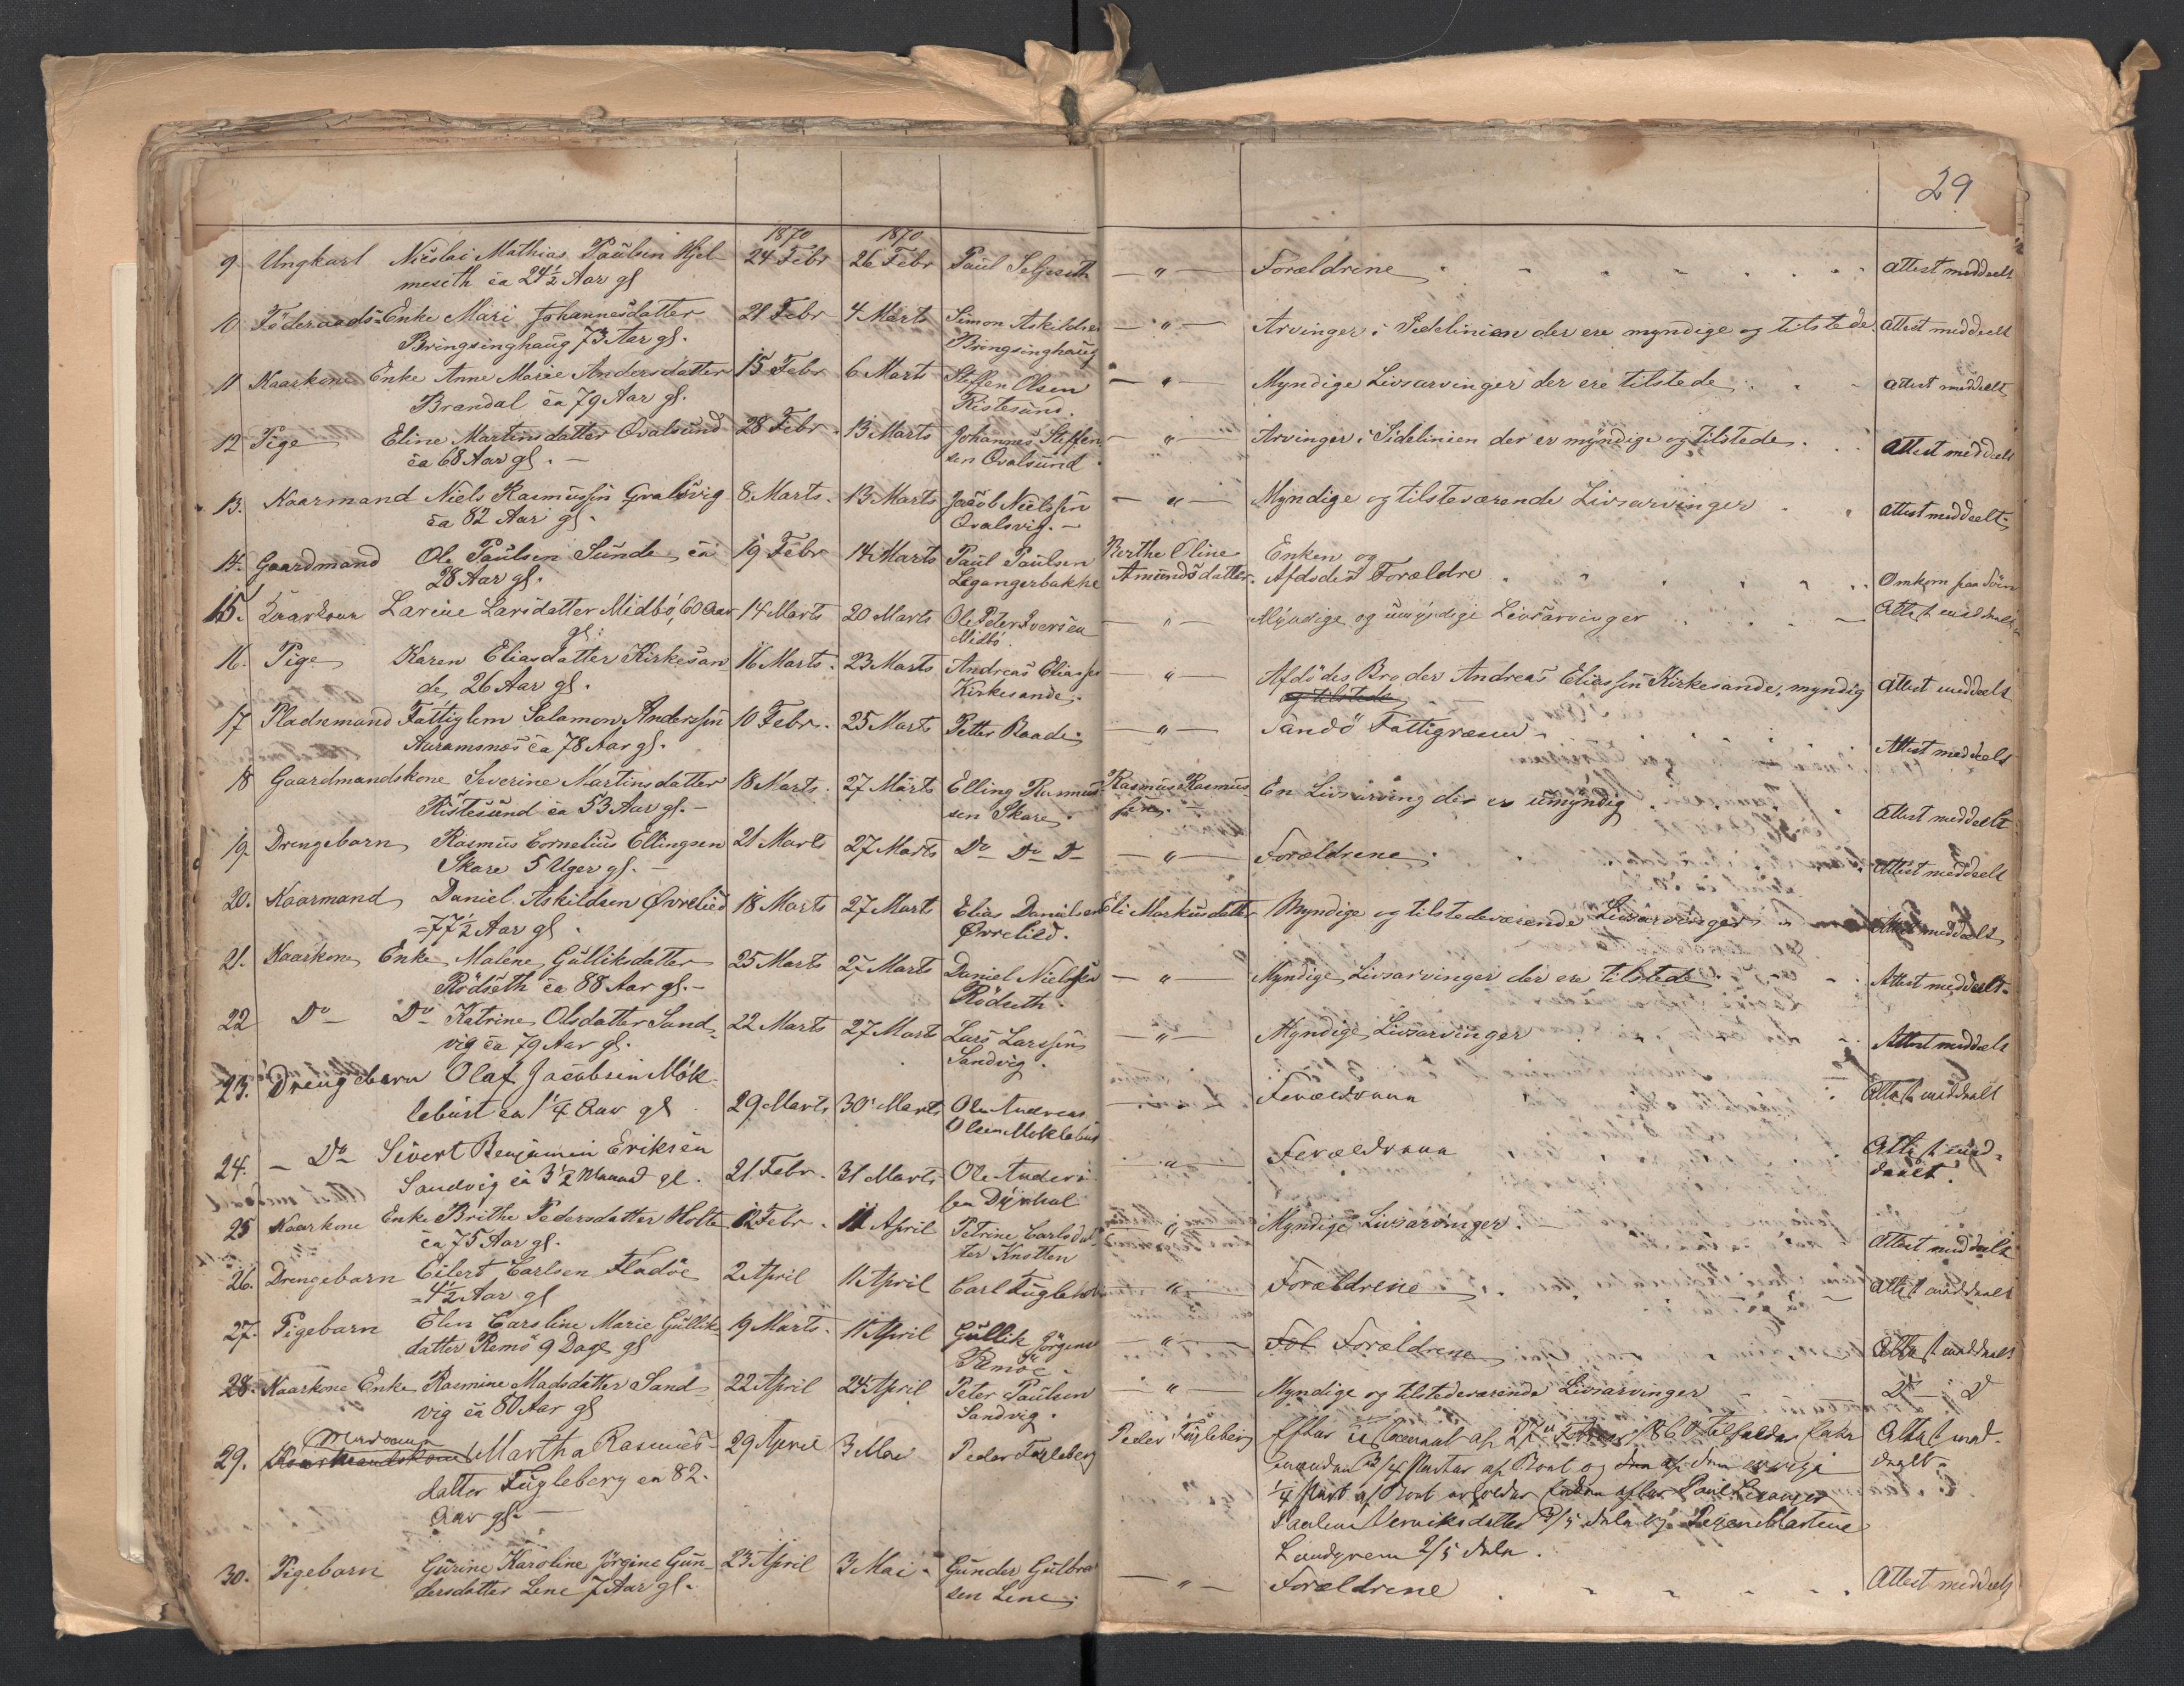 29
1870 1870
9 Ungkarl Nicolai Mathias Paulsen Hjel- 24 Febr 26 Febr Paul Seljeseth — " — Forældrene Attest meddeelt
meseth ca 24½ Aar gl
10. Föderaads-Enke Mari Johannesdatter 21 Febr 4 Marts Simon Askildsen — " — Arvinger i Sidelinien der ere myndige og tilstede Attest meddeelt
Bringsinghaug 73 Aar gl. Bringsinghaug
11 Kaarkone Enke Anne Marie Andersdatter 15 Febr 6 Marts Steffen Olsen — " — Myndige Livsarvinger der ere tilstede Attest meddeelt
Brandal ca 79 Aar gl. Ristesund.
12 Pige Eline Martinsdatter Qvalsund 28 Febr. 13 Marts Johannes Steffen — " — Arvinger i Sidelinien der er myndige og tilstede. Attest meddeelt
ca 68 Aar gl. — sen Qvalsund.
13. Kaarmand Niels Rasmussen Qvalsvig 8 Marts. 13 Marts Jacob Nielssen — " — Myndige og tilsteværende Livsarvinger Attest meddeelt
ca 82 Aar gl. Qvalsvig. —
14. Gaardmand Ole Paulsen Sunde, ca 19 Febr 14 Marts Paul Paulsen Berthe Oline Enken og
28 Aar gl. Legangerbakke Amundsdatter. Afdødes Forældre Omkom paa Söen
15. Kaarkone Larine Larsdatter Midbö, 60 Aar 14 Marts 20 Marts Ole Peter Iversen — " — Myndige og umyndige Livsarvinger Attest meddeelt
gl. Midbö.
16. Pige Karen Eliasdatter Kirkesan- 16 Marts. 23 Marts Andreas Eliassen — " — Afdödes Broder Andreas Eliassen Kirkesande, myndig Attest meddeelt
de, 26 Aar gl. Kirkesande. og tilstede
17 Pladsemand Fattiglem Salamon Anderssen 10 Febr. 25 Marts Petter Baade. — " — Sandö Fattigvæsen Attest meddeelt
Aaramsnæs ca 78 Aar gl.
18 Gaardmandskone Severine Martinsdatter 18 Marts. 27 Marts Elling Rasmus Rasmus Rasmus- En Livsarving der er umyndig Attest meddeelt
Ristesund ca 53 Aar gl. — sen Skare. sen.
19. Drengebarn Rasmus Cornelius Ellingsen 21 Marts 27 Marts Do Do Do — " — Forældrene. Attest meddeelt
Skare 5 Uger gl. —
20. Kaarmand Daniel Askildsen Øvrelied 18 Marts 27 Marts Elias Danielsen Eli Markusdatter Myndige og tilstedeværende Livsarvinger Attest meddeelt
77½ Aar gl. Øvrelied.
21. Kaarkone, Enke, Malene, Gulliksdatter 25 Marts 27 Marts Daniel Nielssen — " — Myndige Livsarvinger der ere tilstede Attest meddeelt.
Rödseth ca 88 Aar gl. — Rödseth.
22 Do Do Katrine Olsdatter Sand- 22 Marts 27 Marts Lars Larssen — " — Myndige Livsarvinger Attest meddeelt
vig ca 79 Aar gl. Sandvig.
23. Drengebarn Olaf Jacobsen Mök-
lebust ca 1¼ Aar gl 29 Marts 30 Marts Ole Andreas — " — Forældrene Attest meddeelt
Olsen Moklebust
24. — Do Sivert Benjamin Eriksen 21 Febr. 31 Marts Ole Anders- — " — Forældrene Attest med-
Sandvig ca 3½ Maaned gl. sen deelt.
25 Kaarkone Enke Brithe Pedersdatter Holte 12 Febr. 11 April Petrine Carlsdat- — " — Myndige Livsarvinger. — Attest meddeelt
ca 75 Aar gl. ter Knotten
26. Drengebarn Eilert Carlsen Fladöe 2 April 11 April Carl — " — Forældrene Attest meddeelt
4½ Aar gl
27. Pigebarn Elen Caroline Marie Gullik- 19 Marts. 11 April Gullik Jörgensen — " — For Forældrene Attest meddeelt
datter Remö 9 Dage gl Remöe
28. Kaarkone Enke, Rasmine Madsdatter Sand- 22 April 24 April Peter Paulsen — " — Myndige og tilstedeværende Livsarvinger Do Do
vig ca 80 Aar gl Sandvig.
29. Kaarmandskone Martha Rasmus- 29 April 3 Mai Peder Fugleberg Peder Fugleberg Efter Testament af 1860 tilfalder Enke- Attest med-
datter Fugleberg ca 82. manden ¾ Parter af Boet og den af den øvrige deelt
Aar gl. — ¼ Part af Boet arholder efter Paul Leganger
Pauline Henriksdatter 3/5 Dele og Pigen Martine
Landgrem 2/5 Dele.
30. Pigebarn Gurine Karoline Jörgine Gun- 23 April 3 Mai. Gunder Gulbrand — " — Forældrene Attest meddeelt
dersdatter Lene 7 Aar gl. sen Lene.